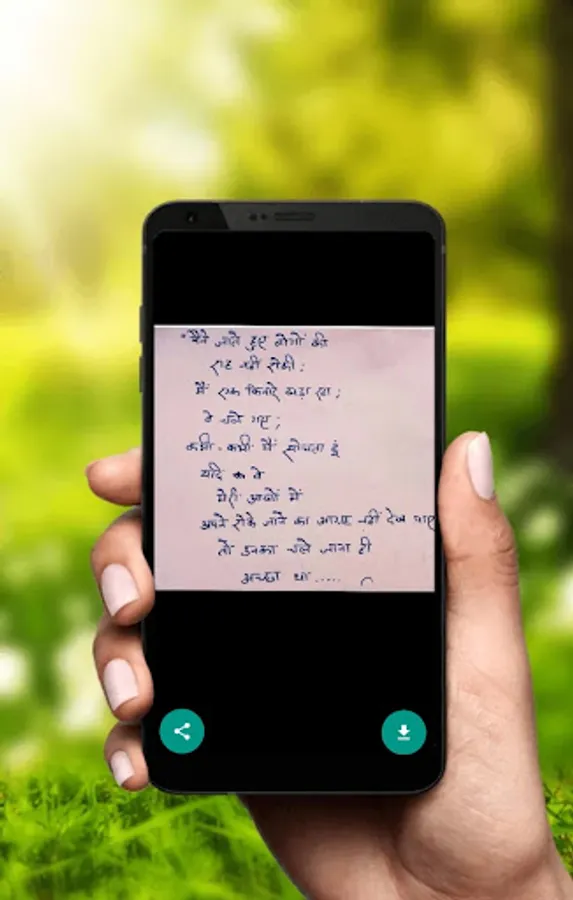 "मैंने जाते हुए लोगों की
राह नहीं रोकी;
मैं एक किनारे खड़ा रहा;
वे चले गए;
कभी-कभी मैं सोचता हूं
यदि वे
मेरी आखों में
अपने रोके जाने का आग्रह नहीं देख पाए
तो उनका चले जाना ही
अच्छा था.....